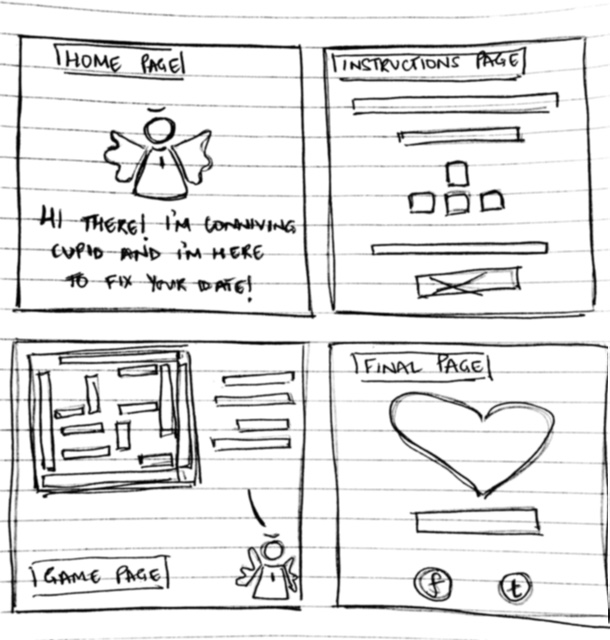 HOME PAGE
HI THERE! I'M CONNIVING
CUPID AND I'M HERE
TO FIX YOUR DATE!
INSTRUCTIONS PAGE
GAME PAGE
FINAL PAGE
f
t